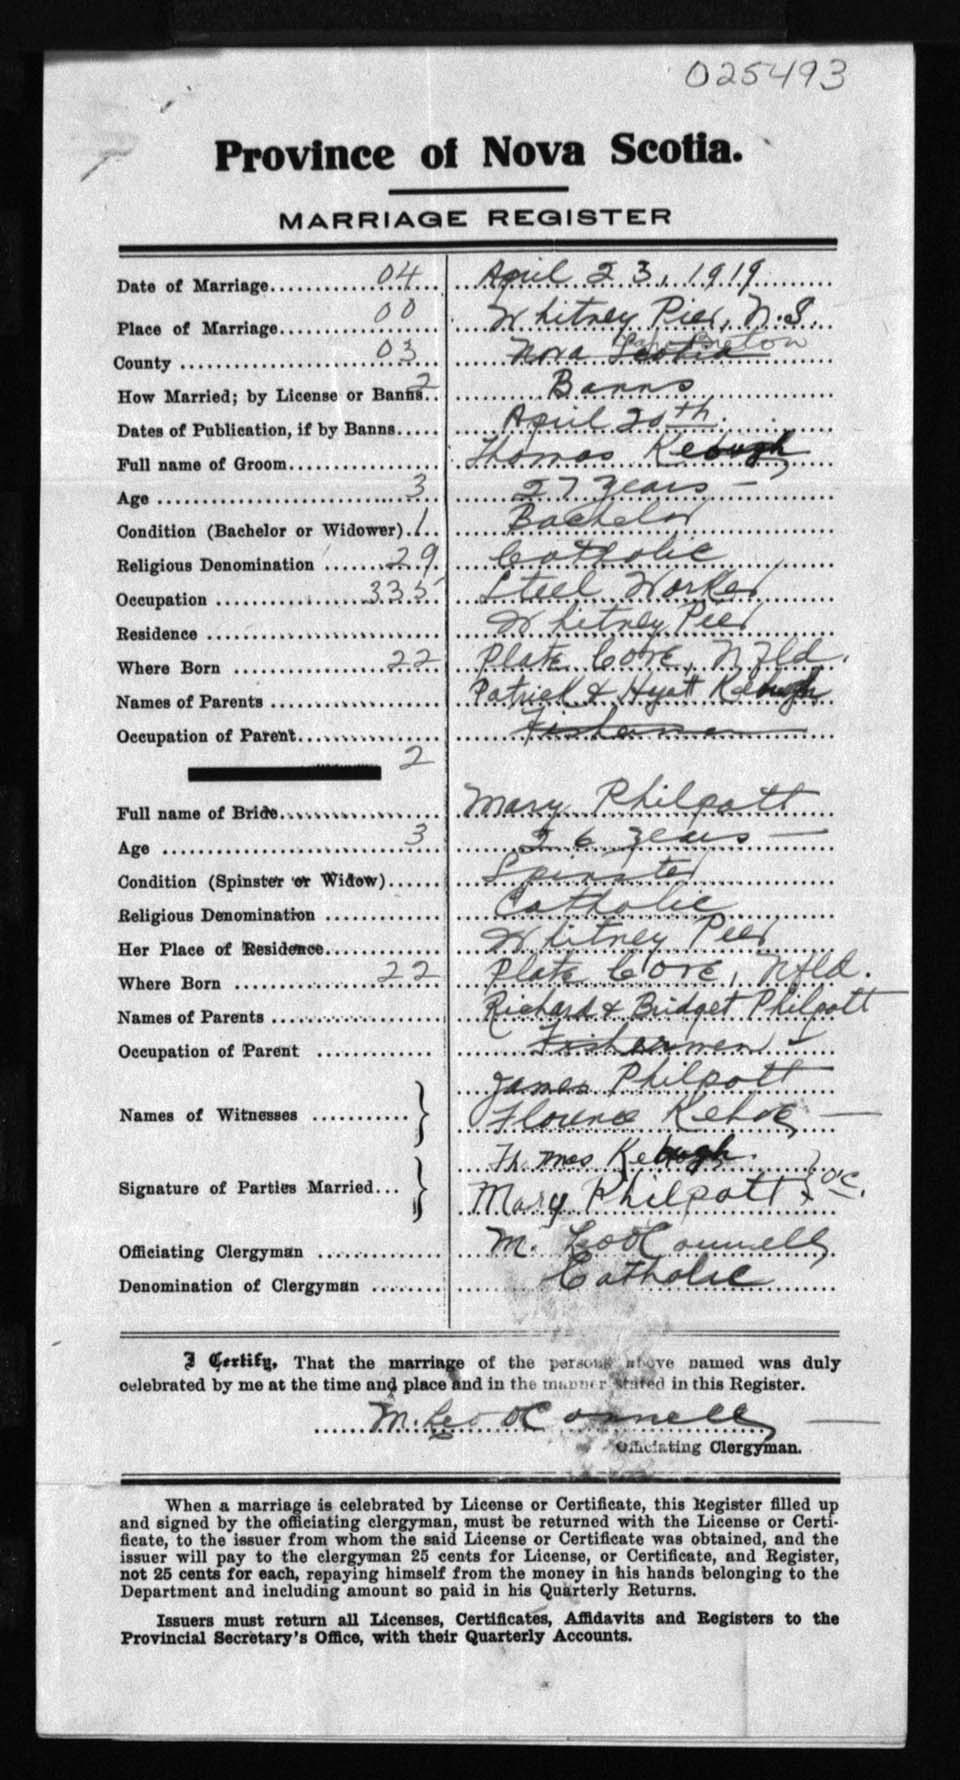 025493
Province of Nova Scotia.
MARRIAGE REGISTER
Date of Marriage 04 April 23, 1919
Place of Marriage 00 Whitney Pier, N.S.
County 03 Nova Scotia Cape Breton
How Married; by License or Banns 2 Banns
Dates of Publication, if by Banns April 20th
Full name of Groom Thomas Keough
Age 3 27 years
Condition (Bachelor or Widower) 1 Bachelor
Religious Denomination 29 Catholic
Occupation 335 Steel Worker
Residence Whitney Pier
Where Born 22 Plate Cove, Nfld.
Names of Parents Patrick & Hyatt Keough
Occupation of Parent Fisherman
2
Full name of Bride Mary Philpott
Age 3 26 years
Condition (Spinster or Widow) Spinster
Religious Denomination Catholic
Her Place of Residence Whitney Pier
Where Born 22 Plate Cove, Nfld.
Names of Parents Richard & Bridget Philpott
Occupation of Parent Fishermen
James Philpott
Names of Witnesses Florence Kehoe
Thomas Keough.
Signature of Parties Married Mary Philpott
Officiating Clergyman M. Leo O'Connell
Denomination of Clergyman Catholic
I Certify, That the marriage of the persons above named was duly
celebrated by me at the time and place and in the manner stated in this Register.
M. Leo O'Connell
Officiating Clergyman.
When a marriage is celebrated by License or Certificate, this Register filled up
and signed by the officiating clergyman, must be returned with the License or Certi-
ficate, to the issuer from whom the said License or Certificate was obtained, and the
issuer will pay to the clergyman 25 cents for License, or Certificate, and Register,
not 25 cents for each, repaying himself from the money in his hands belonging to the
Department and including amount so paid in his Quarterly Returns.
Issuers must return all Licenses, Certificates, Affidavits and Registers to the
Provincial Secretary's Office, with their Quarterly Accounts.